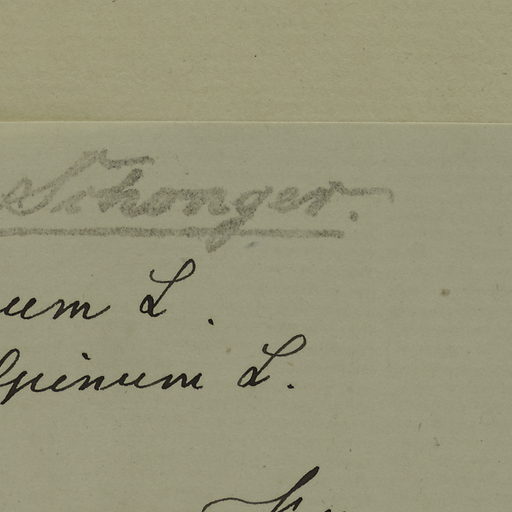 Schonger.
um L.
lpinum L.